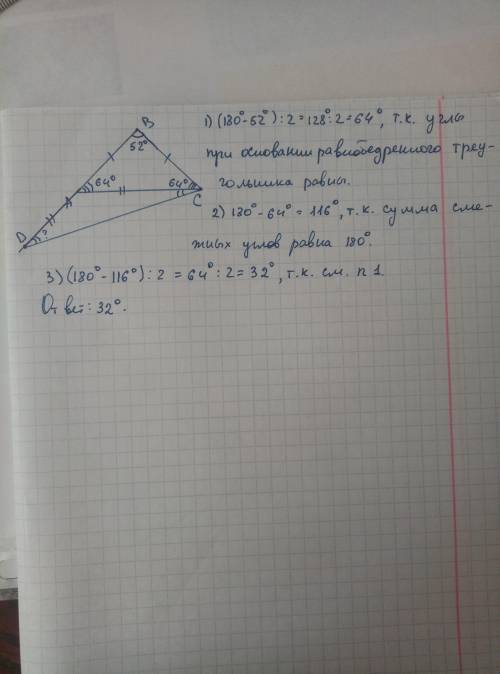 B
52°
64° 64°
C
D
?
1) (180°-52°):2=128°:2=64°, т.к. углы
при основании равнобедренного треу-
гольника равны.
2) 180°-64°=116°, т.к. сумма сме-
жных углов равна 180°.
3) (180°-116°):2=64°:2=32°, т.к. см. п 1.
Ответ: 32°.